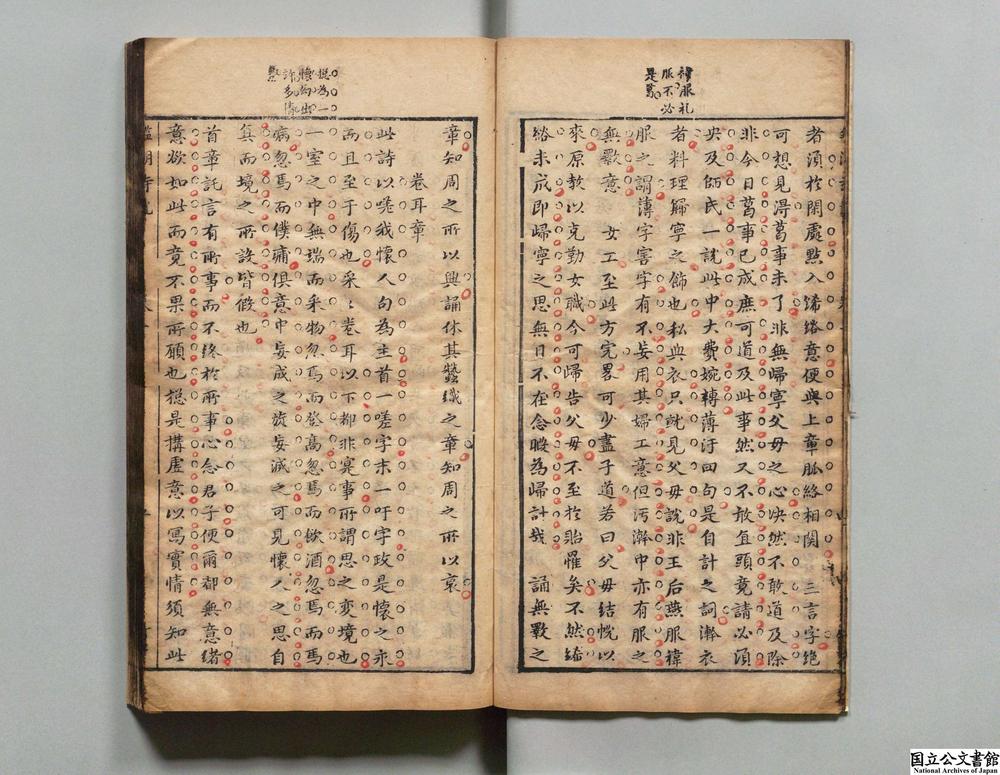 褘服礼
服不必
是褻
者須於閑處點入絺綌意便與上章脉絡相関 三言字絶
可想見淂葛事未了非無歸寧父母之心怏然不敢道及除
非今日葛事已成庶可道及此事然又不敢直頭竟請必須
央及師氏一說此中大費婉轉薄汙曰句是自計之詞澣衣
者料理歸寧之餙也私與衣只就見父母說非王后燕服褘
服之謂薄字害字有不妄用其婦工意但汚澣中亦有服之
無斁意 女工至此方完畧可少盡子道若曰父母結悅以
來原教以克勤女職今可歸告父母不至於貽罹矣不然絺
綌未成即歸寧之思無日不在念暇為歸計哉 誦無斁之
章知周之所以興誦休其蠶織之章知周之所以衰
總為一
懷幻出
許多情
卷耳章
此詩以嗟我懷人句為主首一嗟字末一吁字政是懷之永
而且至于傷也采〻卷耳以下都非寔事所謂思之変境也
一室之中無端而采物忽焉而登高忽焉而飲酒忽焉而馬
病忽焉而僕痡俱意中妄成之旋妄滅之可見懷人之思自
真而境之所設皆假也
首章託言有所事而不終於所事心念君子便爾都無意緒
意欲如此而竟不果所願也總是搆虛意以寫實情須知此
国立公文書館
National Archives of Japan